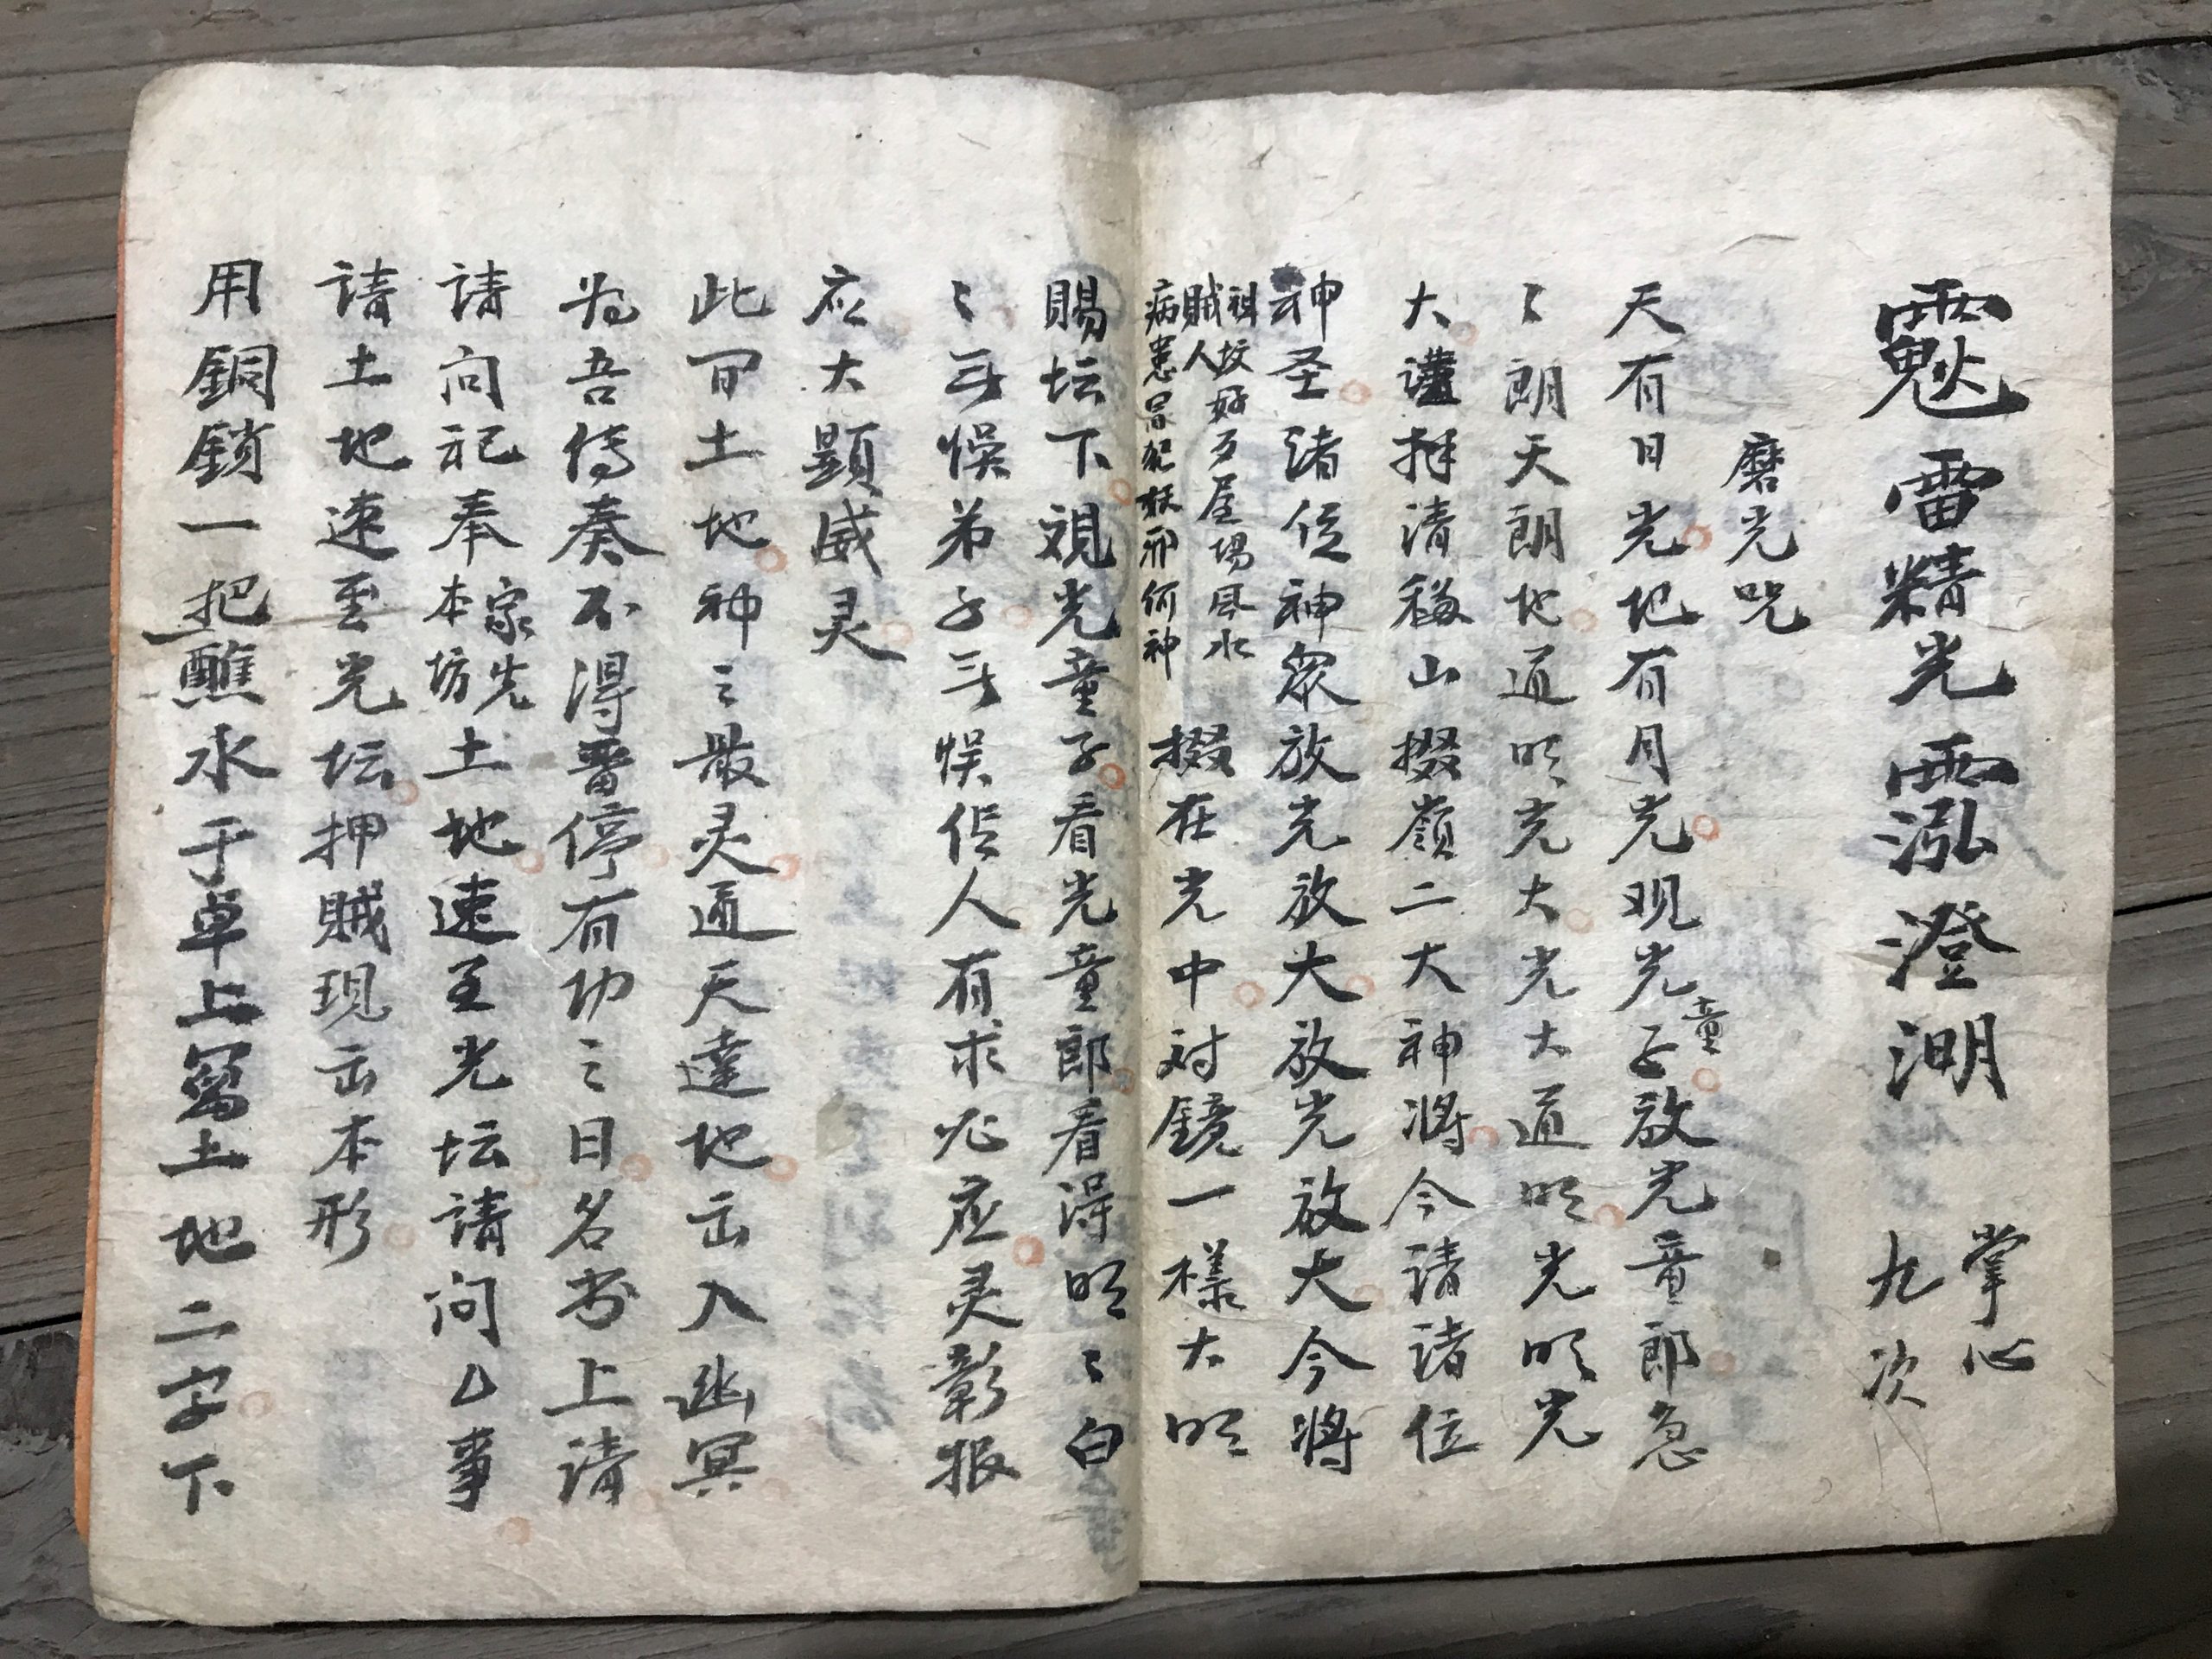 雷精光 澄 掌心
九次
磨光咒
天有日光地有月光观光童子放光童郎急
〻朗天朗地道明光大光大道明光明光
大 清移山掇嶺二大神將今请诸位
神圣诸位神眾放光放大放光放大今将
祖坟好歹屋场风水
賊人
病患冒犯妖邪何神
掇在光中对鏡一樣大明
賜坛下視光童子看光童郎看得明〻白
〻 悮弟子 悮信人有求必应灵彰报
应大顯威灵
此间土地神〻最灵通天達地出入幽冥
为吾传奏不得畱停有功之日名书上请
请问祀奉家先本坊土地速至光坛请问厶事
请土地速至光坛押賊现出本形
用銅鎖一把醮水于卓上寫土地二字下